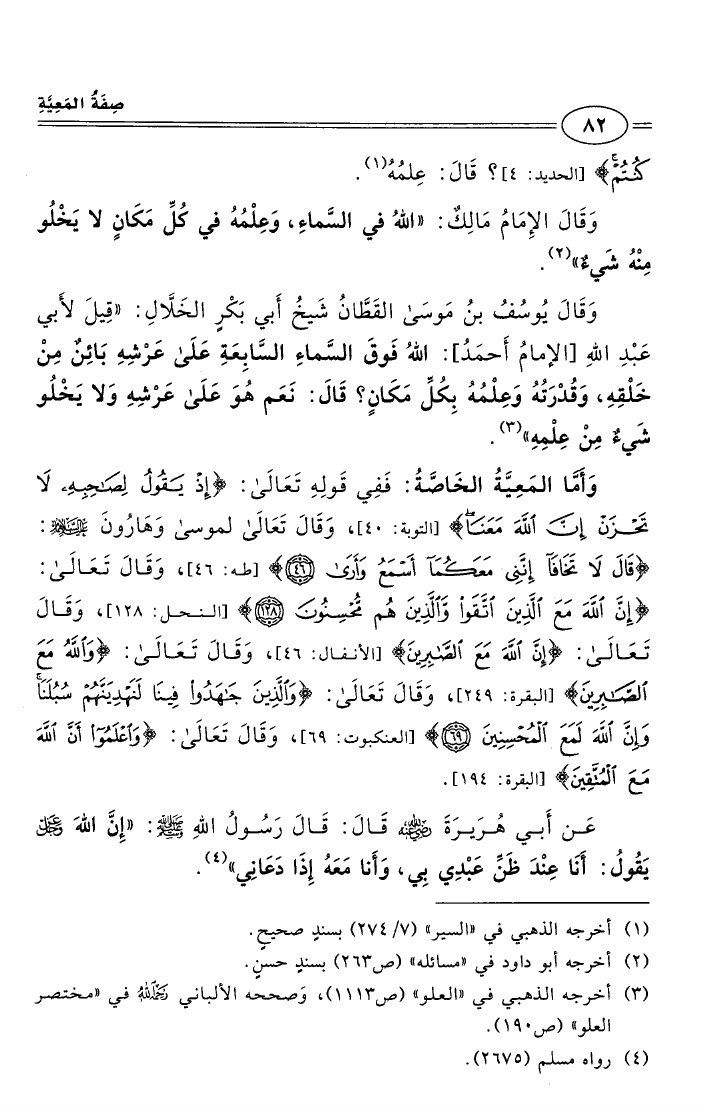 صِفَةُ المَعِيَّةِ
٨٢
كُنتُمْ﴾ [الحديد: ٤]؟ قَالَ: عِلمُهُ(١).
وَقَالَ الإِمَامُ مَالِكٌ: «اللهُ في السَّماءِ، وَعِلْمُهُ في كُلِّ مَكَانٍ لا يَخْلُو
مِنْهُ شَيءٌ»(٢).
وَقَالَ يُوسُفُ بنُ مَوسَىٰ القَطَّانُ شَيخُ أبي بَكْرٍ الخَلَّالِ: «قِيلَ لأبي
عَبْدِ اللهِ [الإمامُ أحمَدُ]: اللهُ فَوقَ السَّماءِ السَّابِعَةِ عَلَىٰ عَرْشِهِ بَائِنٌ مِنْ
خَلْقِهِ، وَقُدْرَتُهُ وَعِلْمُهُ بِكُلِّ مَكَانٍ؟ قَالَ: نَعَم هُوَ عَلَىٰ عَرْشِهِ وَلا يَخْلُو
شَيءٌ مِنْ عِلْمِهِ»(٣).
وَأمَّا المَعِيَّةُ الخَاصَّةُ: فَفِي قَولِهِ تَعَالَىٰ: ﴿إِذْ يَقُولُ لِصَاحِبِهِۦ لَا
تَحْزَنْ إِنَّ ٱللَّهَ مَعَنَا﴾ [التوبة: ٤٠]، وَقَالَ تَعَالَىٰ لموسىٰ وَهَارُونَ عليهما السلام:
﴿قَالَ لَا تَخَافَآ إِنَّنِي مَعَكُمَآ أَسْمَعُ وَأَرَىٰ ٤٦﴾ [طه: ٤٦]، وَقَالَ تَعَالَىٰ:
﴿إِنَّ ٱللَّهَ مَعَ ٱلَّذِينَ ٱتَّقَوا۟ وَّٱلَّذِينَ هُم مُّحْسِنُونَ ١٢٨﴾ [النحل: ١٢٨]، وَقَالَ
تَعَالَىٰ: ﴿إِنَّ ٱللَّهَ مَعَ ٱلصَّابِرِينَ﴾ [الأنفال: ٤٦]، وَقَالَ تَعَالَىٰ: ﴿وَٱللَّهُ مَعَ
ٱلصَّابِرِينَ﴾ [البقرة: ٢٤٩]، وَقَالَ تَعَالَىٰ: ﴿وَٱلَّذِينَ جَاهَدُوا۟ فِينَا لَنَهْدِيَنَّهُمْ سُبُلَنَا
وَإِنَّ ٱللَّهَ لَمَعَ ٱلْمُحْسِنِينَ ٦٩﴾ [العنكبوت: ٦٩]، وَقَالَ تَعَالَىٰ: ﴿وَٱعْلَمُوٓا۟ أَنَّ ٱللَّهَ
مَعَ ٱلْمُتَّقِينَ﴾ [البقرة: ١٩٤].
عَن أبي هُرَيرَةَ رضي الله عنه قَالَ: قَالَ رَسُولُ اللهِ ﷺ: «إنَّ اللهَ عز وجل
يَقُولُ: أَنَا عِنْدَ ظَنِّ عَبْدِي بِي، وَأَنا مَعَهُ إِذَا دَعَانِي»(٤).
(١) أخرجه الذهبي في «السير» (٧/ ٢٧٤) بسندٍ صحيحٍ.
(٢) أخرجه أبو داود في «مسائله» (ص٢٦٣) بسندٍ حسنٍ.
(٣) أخرجه الذهبي في «العلو» (ص١١١٣)، وَصححه الألباني رحمه الله في «مختصر
العلو» (ص١٩٠).
(٤) رواه مسلم (٢٦٧٥).